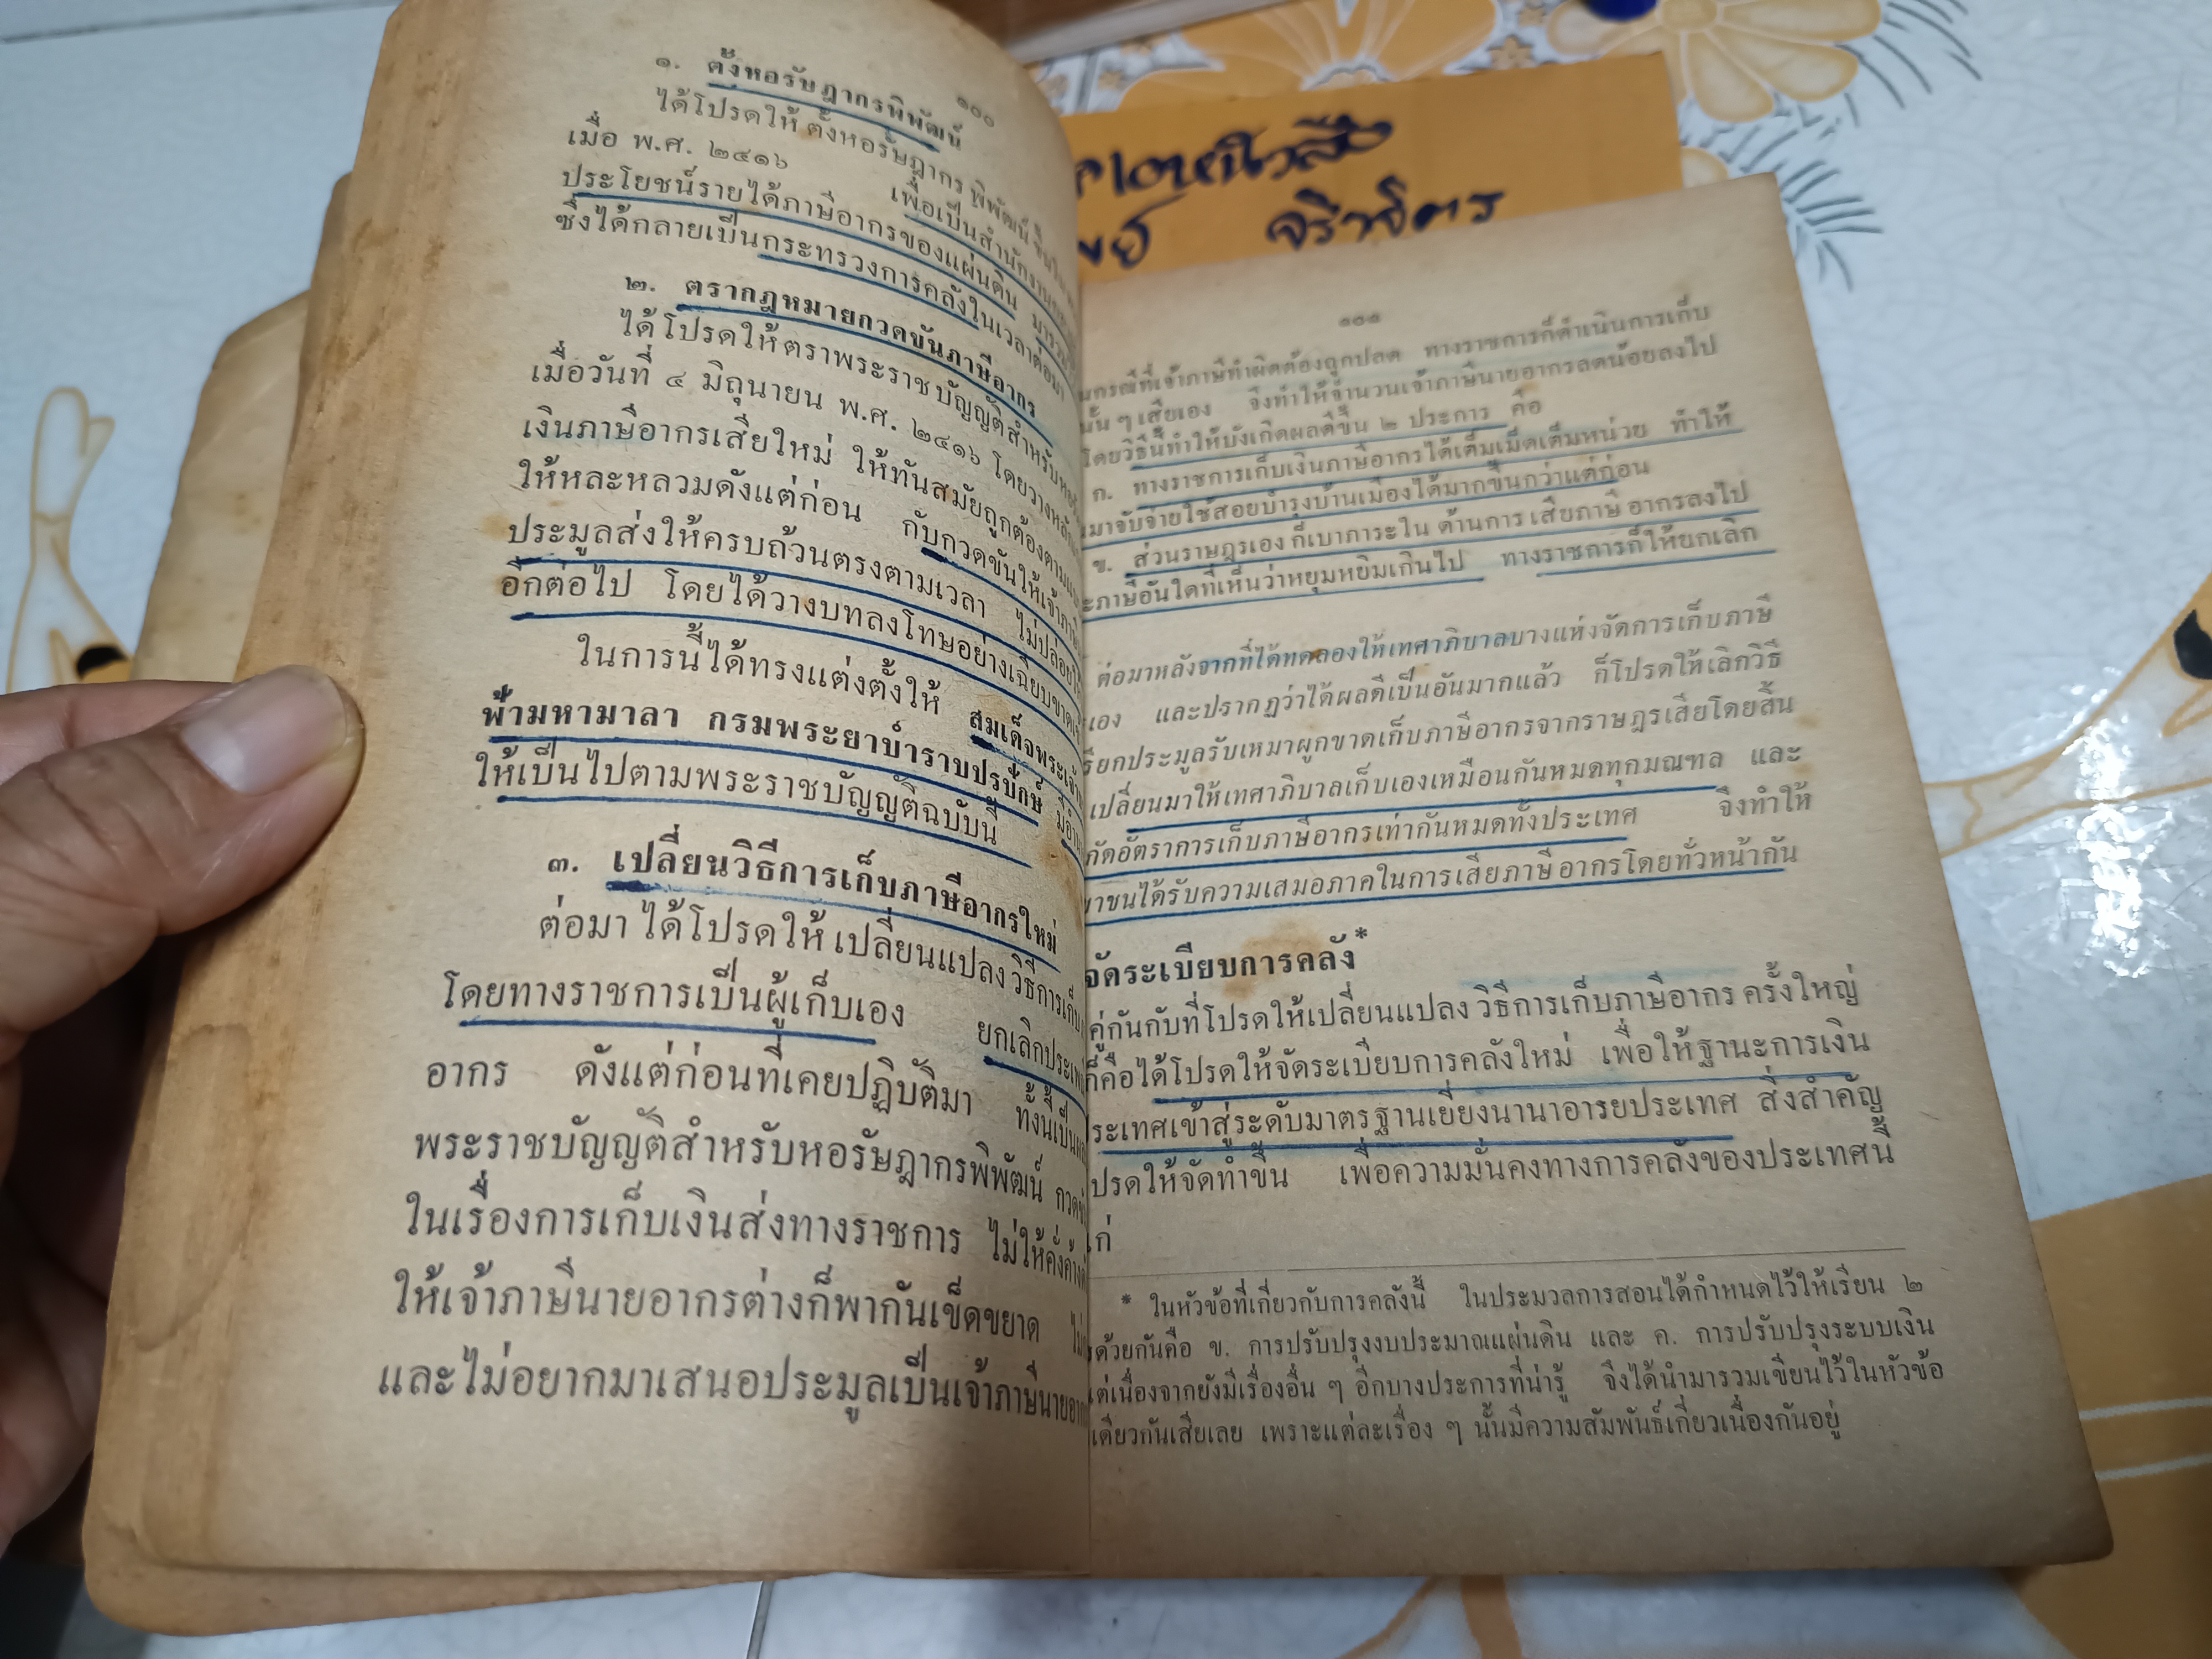 ๑๐๐
๑. ตั้งหอรัษฎากรพิพัฒน์
ได้โปรดให้ ตั้งหอรัษฎากร พิพัฒน์ ขึ้น
เมื่อ พ.ศ. ๒๔๑๖ เพื่อเป็นสำนักงาน
ประโยชน์รายได้ภาษีอากรของแผ่นดิน
ซึ่งได้กลายเป็นกระทรวงการคลังในเวลาต่อมา
๒. ตรากฎหมายกวดขันภาษีอากร
ได้โปรดให้ตราพระราชบัญญัติสำหรับ
เมื่อวันที่ ๔ มิถุนายน พ.ศ. ๒๔๑๖ โดยวางหลัก
เงินภาษีอากรเสียใหม่ ให้ทันสมัยถูกต้องตาม
ให้หละหลวมดังแต่ก่อน กับกวดขันให้เจ้าภาษี
ประมูลส่งให้ครบถ้วนตรงตามเวลา ไม่ปล่อย
อีกต่อไป โดยได้วางบทลงโทษอย่างเฉียบขาด
ในการนี้ได้ทรงแต่งตั้งให้ สมเด็จพระเจ้า
ฟ้ามหามาลา กรมพระยาบำราบปรปักษ์ มีอำ
ให้เป็นไปตามพระราชบัญญัติฉบับนี้
๓. เปลี่ยนวิธีการเก็บภาษีอากรใหม่
ต่อมา ได้โปรดให้ เปลี่ยนแปลง วิธีการเก็บ
โดยทางราชการเป็นผู้เก็บเอง ยกเลิกประเพ
อากร ดังแต่ก่อนที่เคยปฏิบัติมา ทั้งนี้เป็นผล
พระราชบัญญัติสำหรับหอรัษฎากรพิพัฒน์ กวดขั
ในเรื่องการเก็บเงินส่งทางราชการ ไม่ให้คั่งค้าง
ให้เจ้าภาษีนายอากรต่างก็พากันเข็ดขยาด
และไม่อยากมาเสนอประมูลเป็นเจ้าภาษีนายอาก
จริวจิตร
๑๐๑
นกรณีที่เจ้าภาษีทำผิดต้องถูกปลด ทางราชการก็ดำเนินการเก็บ
นั้น ๆ เสียเอง จึงทำให้จำนวนเจ้าภาษีนายอากรลดน้อยลงไป
โดยวิธีนี้ทำให้บังเกิดผลดีขึ้น ๒ ประการ คือ
ก. ทางราชการเก็บเงินภาษีอากรได้เต็มเม็ดเต็มหน่วย ทำให้
มาจับจ่ายใช้สอยบำรุงบ้านเมืองได้มากขึ้นกว่าแต่ก่อน
ข. ส่วนราษฎรเอง ก็เบาภาระใน ด้านการ เสียภาษี อากรลงไป
ะภาษีอันใดที่เห็นว่าหยุมหยิมเกินไป ทางราชการก็ให้ยกเลิก
ต่อมาหลังจากที่ได้ทดลองให้เทศาภิบาลบางแห่งจัดการเก็บภาษี
เอง และปรากฏว่าได้ผลดีเป็นอันมากแล้ว ก็โปรดให้เลิกวิธี
รียกประมูลรับเหมาผูกขาดเก็บภาษีอากรจากราษฎรเสียโดยสิ้น
เปลี่ยนมาให้เทศาภิบาลเก็บเองเหมือนกันหมดทุกมณฑล และ
กัดอัตราการเก็บภาษีอากรเท่ากันหมดทั้งประเทศ จึงทำให้
าชนได้รับความเสมอภาคในการเสียภาษี อากรโดยทั่วหน้ากัน
จัดระเบียบการคลัง*
คู่กันกับที่โปรดให้เปลี่ยนแปลง วิธีการเก็บภาษีอากร ครั้งใหญ่
ก็คือได้โปรดให้จัดระเบียบการคลังใหม่ เพื่อให้ฐานะการเงิน
ระเทศเข้าสู่ระดับมาตรฐานเยี่ยงนานาอารยประเทศ สิ่งสำคัญ
ปรดให้จัดทำขึ้น เพื่อความมั่นคงทางการคลังของประเทศนี้
ก่
* ในหัวข้อที่เกี่ยวกับการคลังนี้ ในประมวลการสอนได้กำหนดไว้ให้เรียน ๒
ด้วยกันคือ ข. การปรับปรุงงบประมาณแผ่นดิน และ ค. การปรับปรุงระบบเงิน
แต่เนื่องจากยังมีเรื่องอื่น ๆ อีกบางประการที่น่ารู้ จึงได้นำมารวมเขียนไว้ในหัวข้อ
เดียวกันเสียเลย เพราะแต่ละเรื่อง ๆ นั้นมีความสัมพันธ์เกี่ยวเนื่องกันอยู่